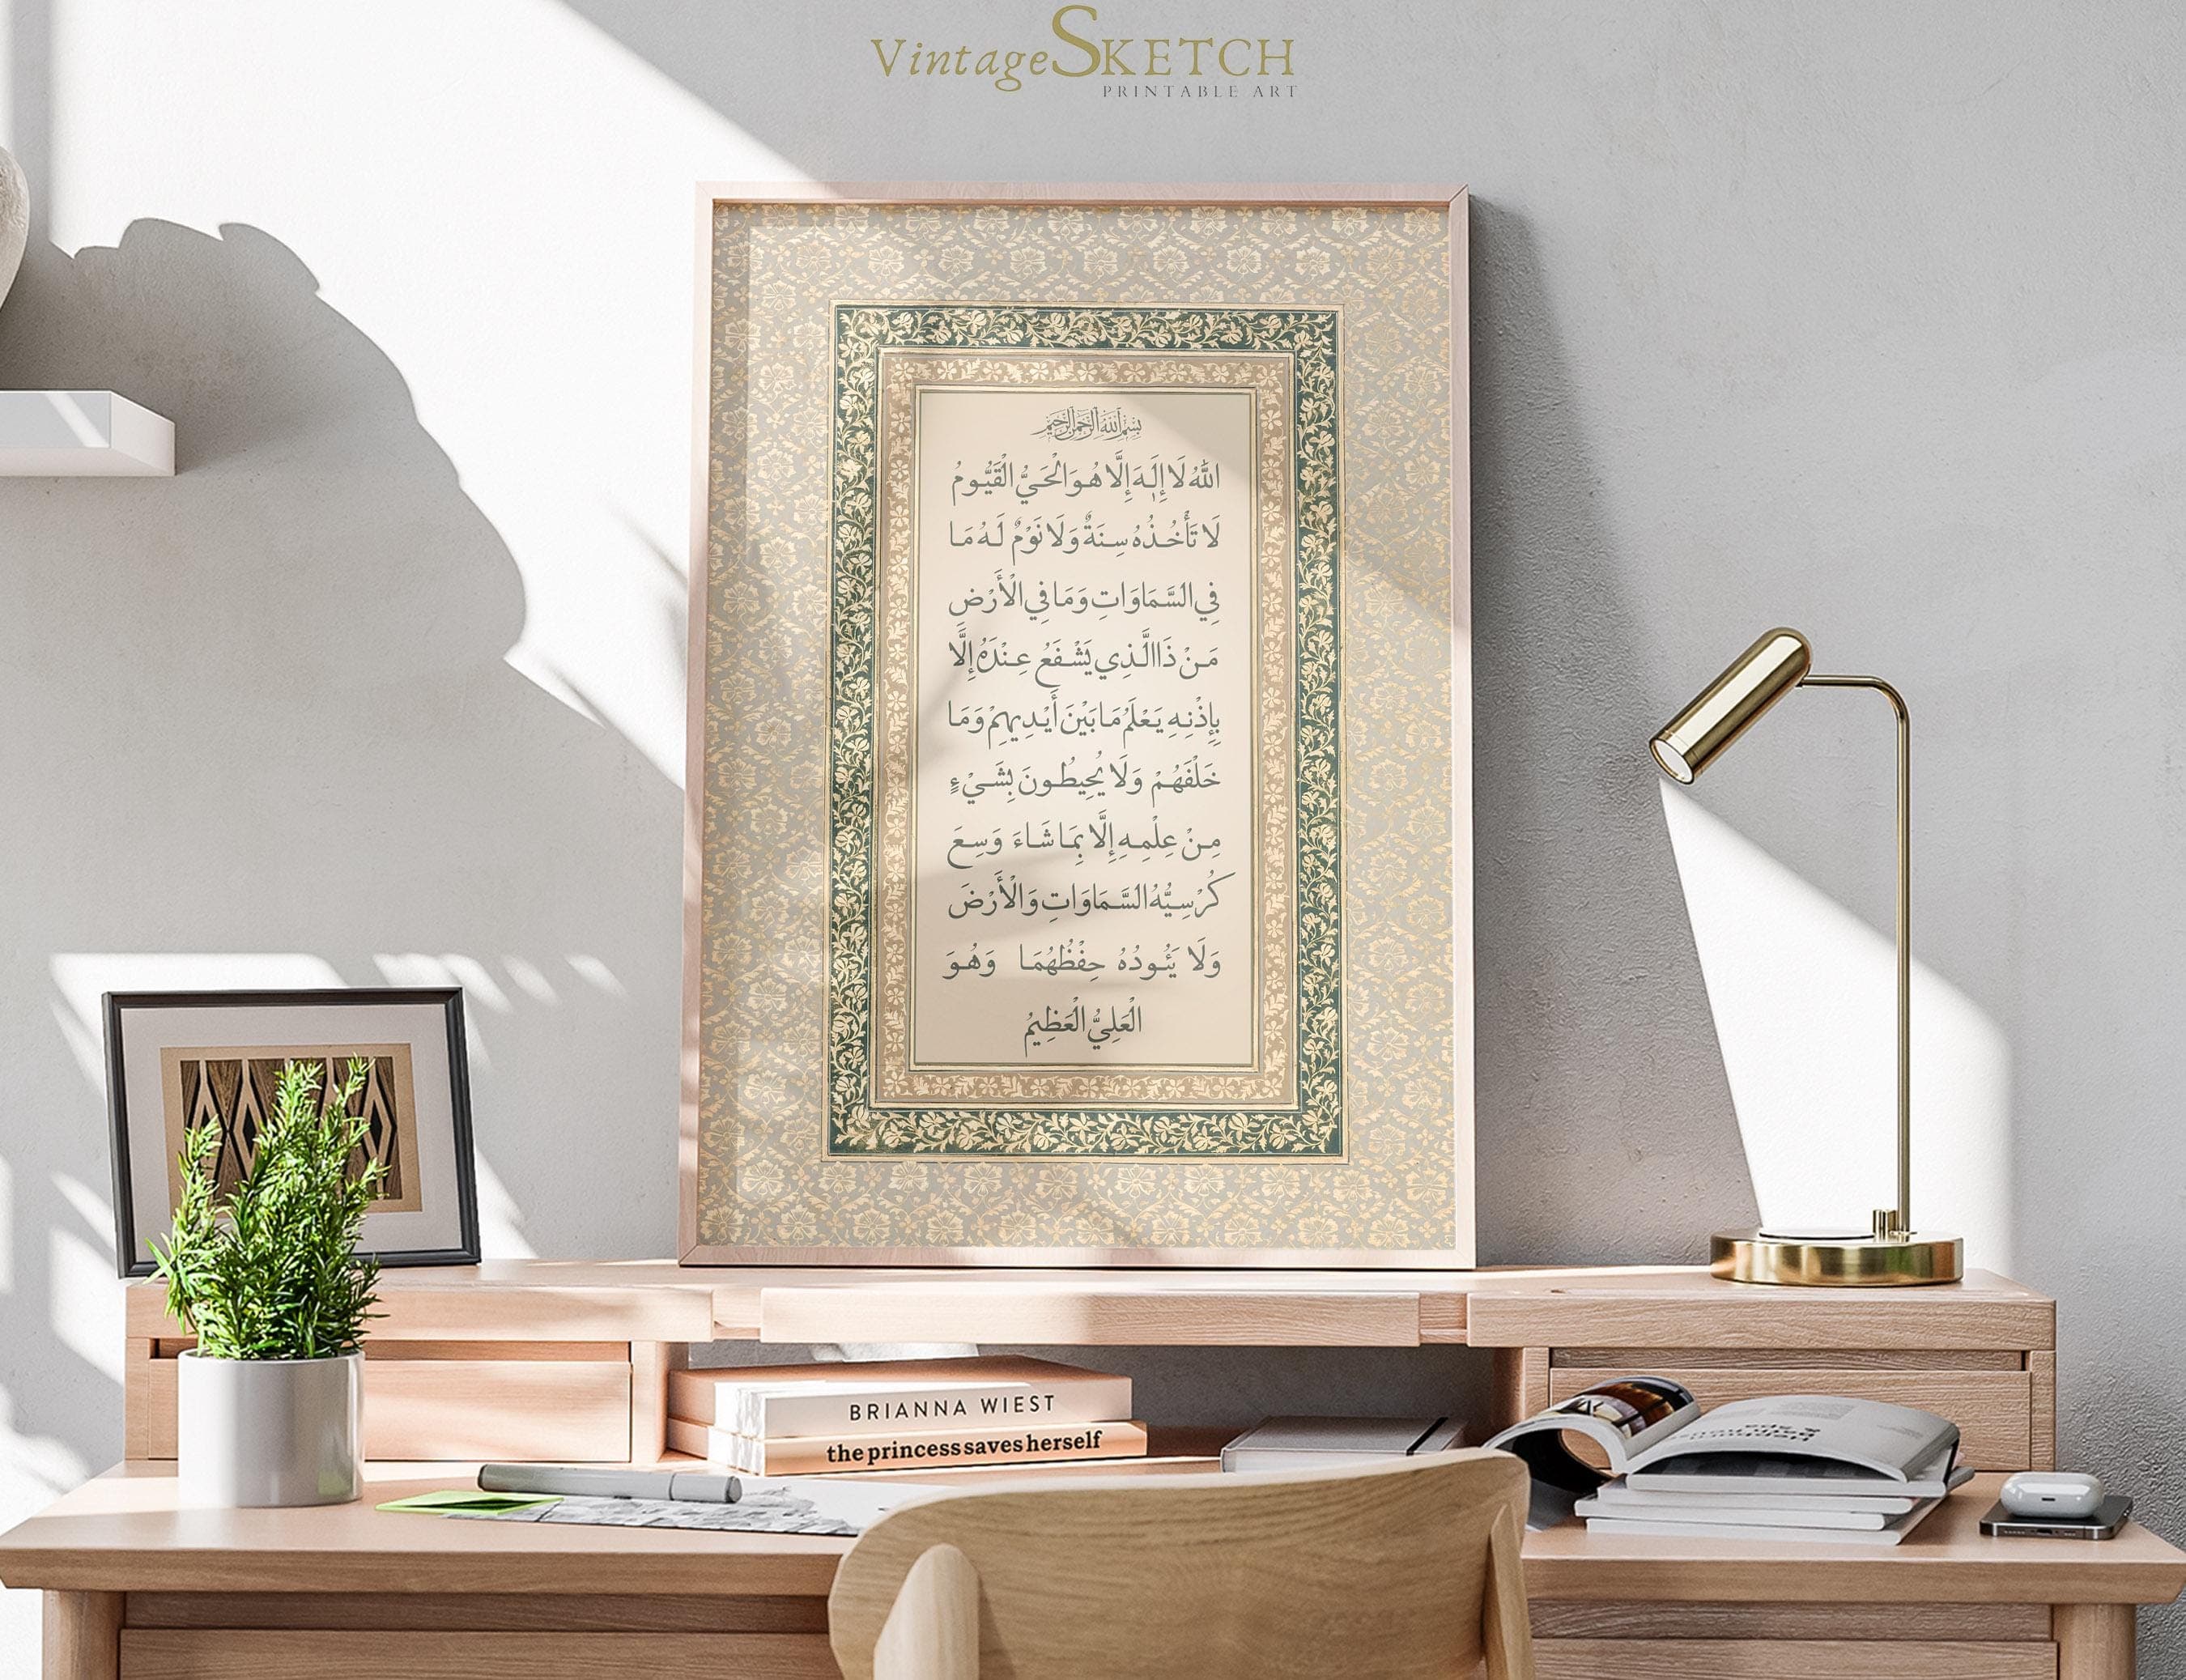 VintageSKETCH
PRINTABLE ART
بِسْمِ اللَّهِ الرَّحْمَنِ الرَّحِيمِ
اللَّهُ لَا إِلَٰهَ إِلَّا هُوَ الْحَيُّ الْقَيُّومُ
لَا تَأْخُذُهُ سِنَةٌ وَلَا نَوْمٌ لَهُ مَا
فِي السَّمَاوَاتِ وَمَا فِي الْأَرْضِ
مَنْ ذَا الَّذِي يَشْفَعُ عِنْدَهُ إِلَّا
بِإِذْنِهِ يَعْلَمُ مَا بَيْنَ أَيْدِيهِمْ وَمَا
خَلْفَهُمْ وَلَا يُحِيطُونَ بِشَيْءٍ
مِنْ عِلْمِهِ إِلَّا بِمَا شَاءَ وَسِعَ
كُرْسِيُّهُ السَّمَاوَاتِ وَالْأَرْضَ
وَلَا يَئُودُهُ حِفْظُهُمَا وَهُوَ
الْعَلِيُّ الْعَظِيمُ
BRIANNA WIEST
the princess saves herself